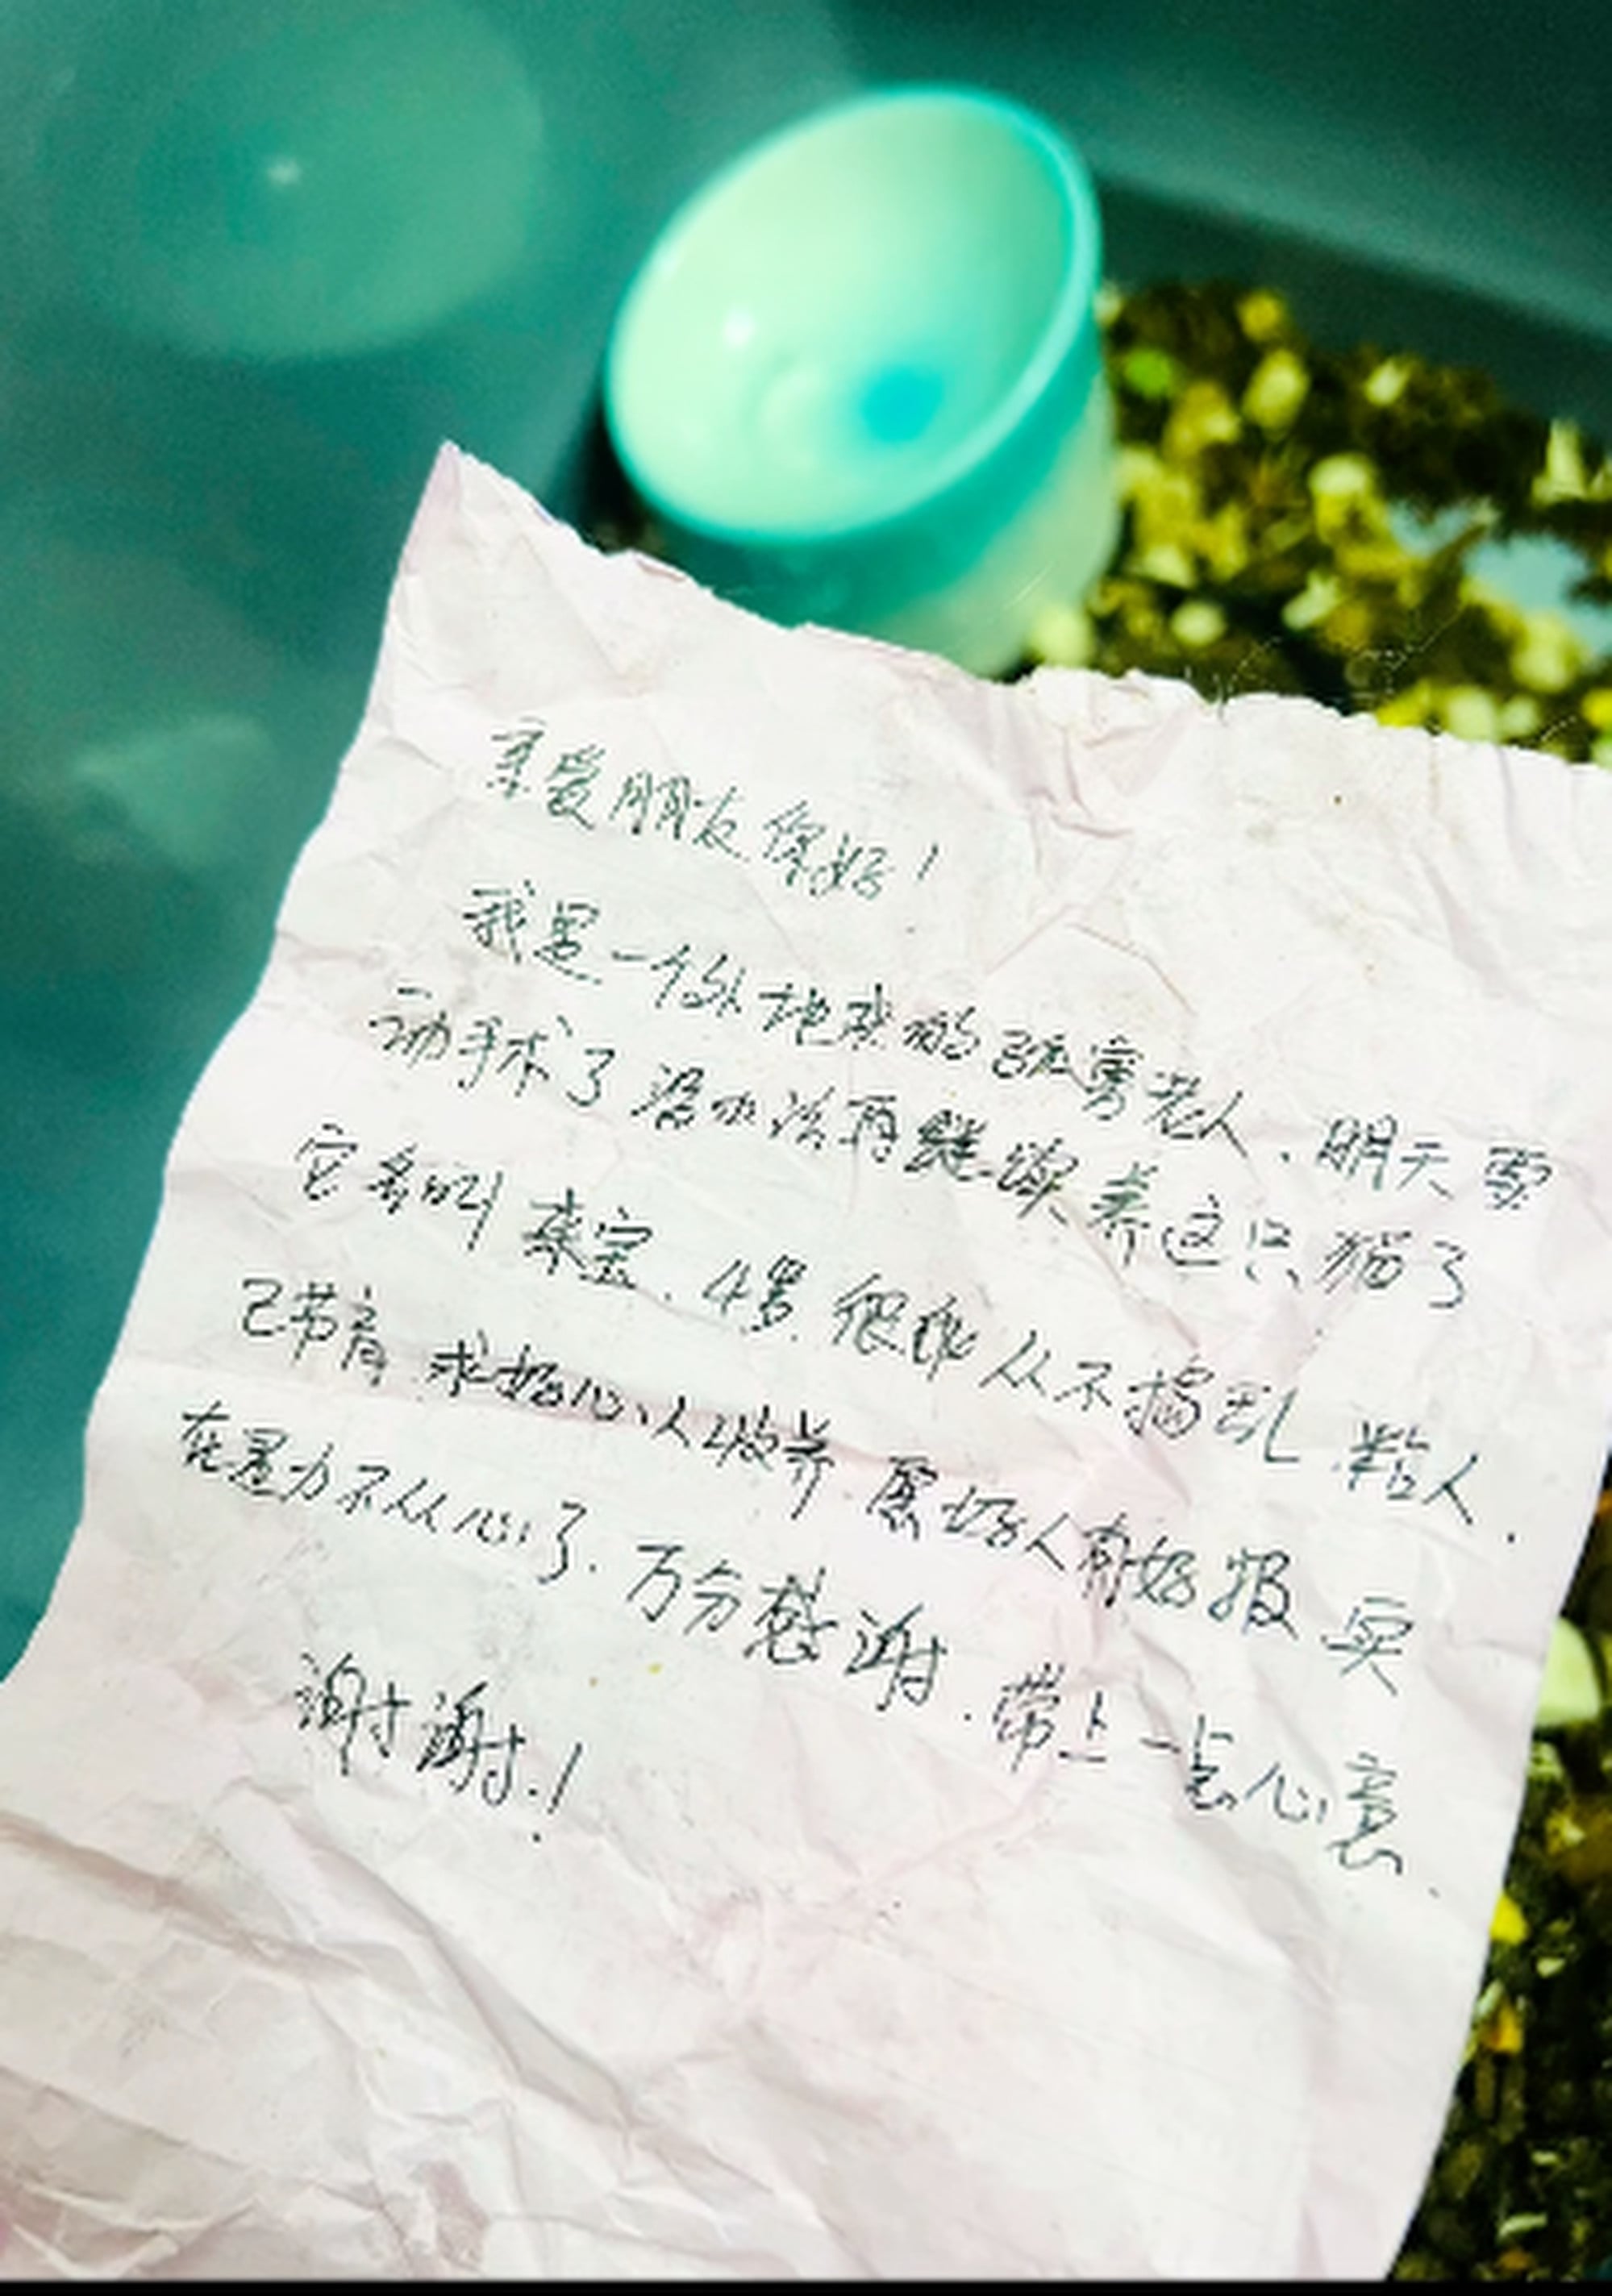 亲爱朋友你好!
我是一个外地来的孤寡老人.明天要
动手术了没办法再继续养这只猫了
它名叫来宝.4岁.很乖从不捣乱 粘人.
已节育 求好心人收养.愿好人有好报 实
在是力不从心了.万分感谢.带上一点心意.
谢谢!